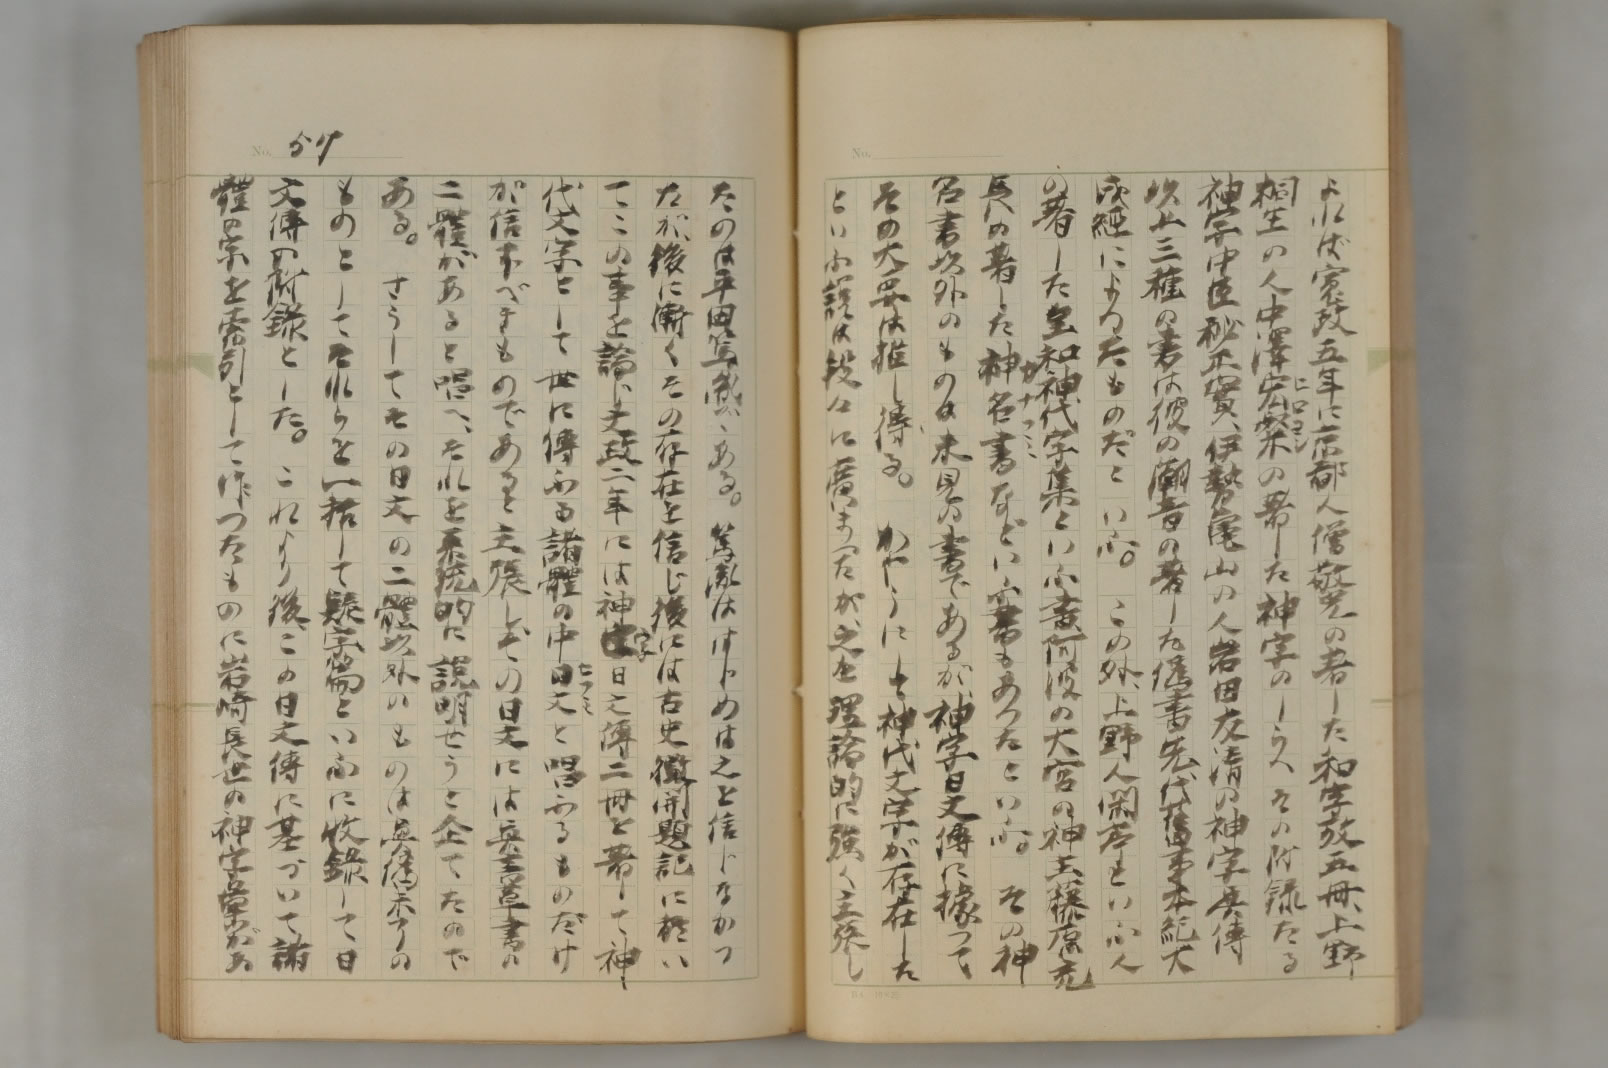 よれば寛政五年に京都人僧敬光の著した和字攷五冊、上野
桐生の人中澤宏粲の著した神字のしらべその附録たる
神字中臣秘正實、伊勢亀山の人岩田友清の神字典傳
以上三種の書は彼の潮音の著した偽書先代舊事本紀大
成經によつたものだといふ。この外、上野人
の著した 和神代字集といふ書阿波の大宮の神主藤原充
長の著した神名書などいふ書もあつたといふ。その神
かなふみ
名書以外のものは未見の書であるが、神字日文傳に據つて
その大要は推し得る。かやうにして神代文字が存在した
といふ説は段々に廣まつたが、之を理論的に強く主張し
No. 57
たのは平田篤胤である。篤胤ははじめは之を信じなかつ
たが、後に漸くその存在を信じ後には古史徴開題記に於い
てこの事を論じ文政二年には神字日文傳二冊を著して神
代文字として世に傳ふる諸體の中日文と唱ふるものだけ
ひふみ
が信ずべきものであると主張し、その日文には真書草書の
二體があると唱へ、それを系統的に説明せうと企てたので
ある。さうしてその日文の二體以外のものは
ものとしてそれらを一括して疑字篇といふに收録して日
文傳の附録とした。これより後、この日文傳に基づいて諸
體の字を索引として作つたものに岩崎長世の神字彙があ
No.